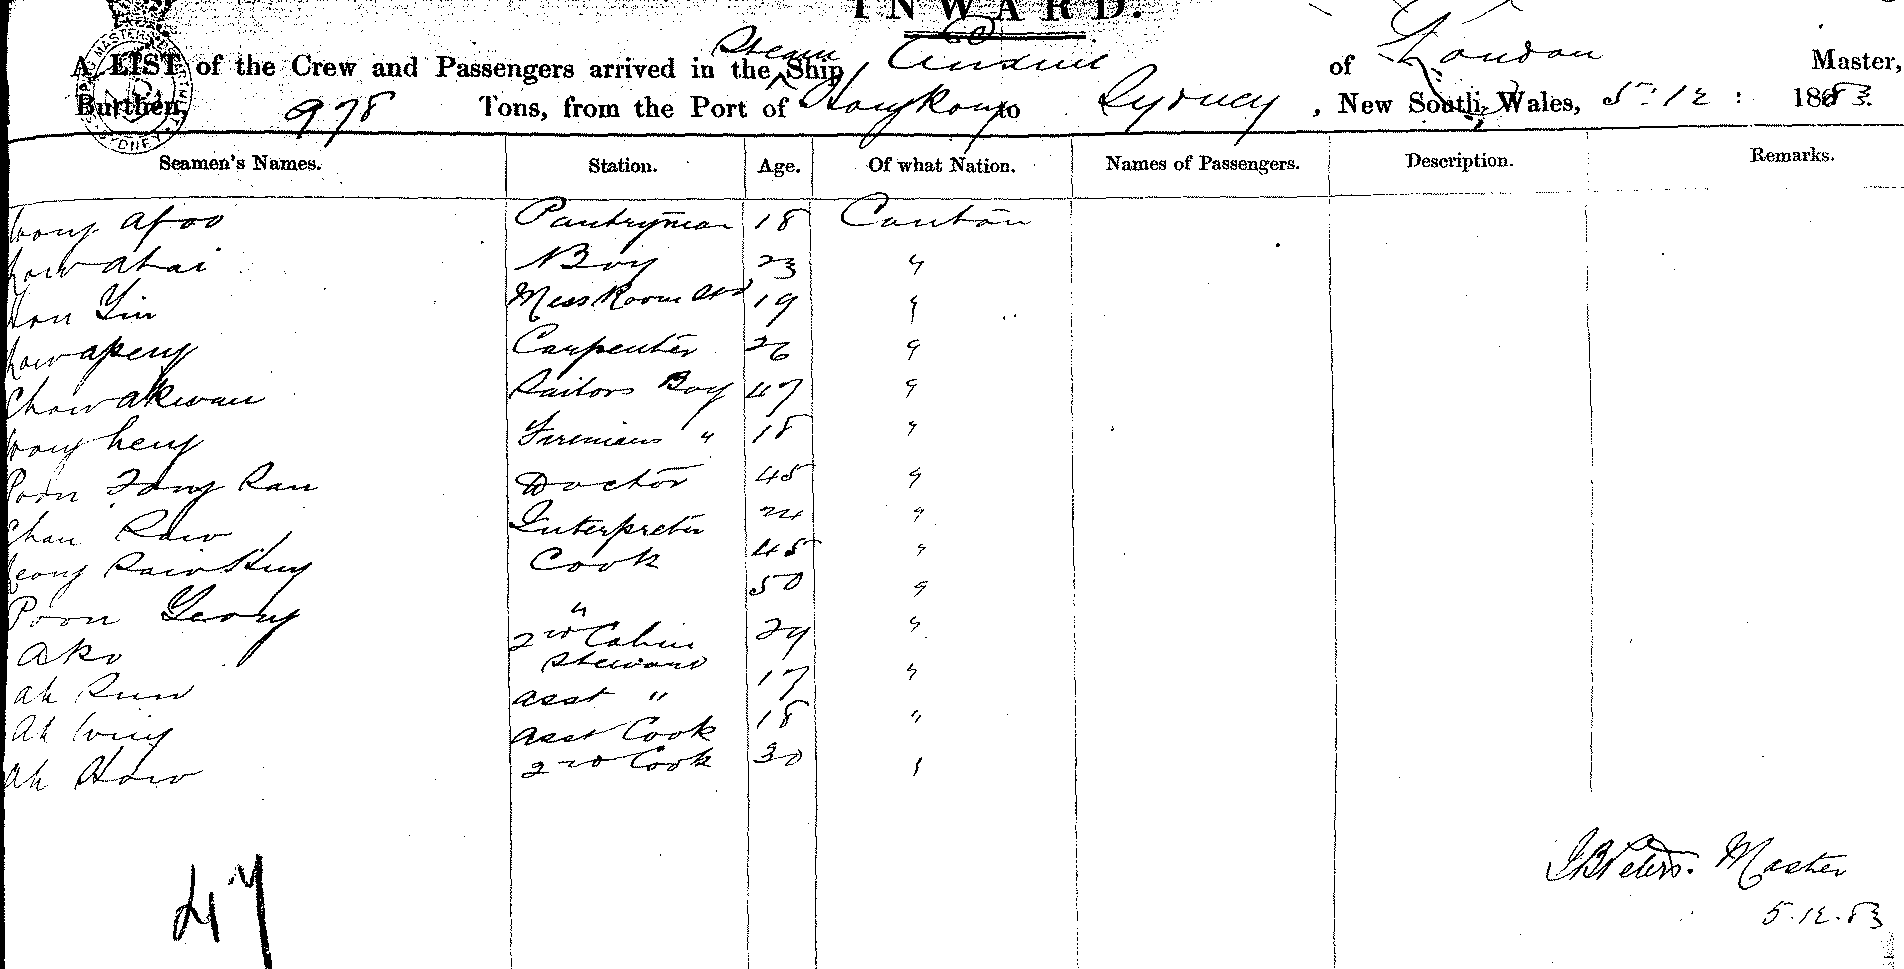 INWARD.
A LIST of the Crew and Passengers arrived in the Steam Ship of London Master,
Burthen, 978 Tons, from the Port of Hong Kong to Sydney, New South Wales, 5.12: 1883.
Seamen's Names. Station. Age. Of what Nation. Names of Passengers. Description. Remarks.
Wong Afoo Pantryman 18 Canton
Ahai Boy 23 "
Hon Yin Mess Room 19 "
Apeng Carpenter 26 "
Chow Akwan Sailors Boy 47 "
Wong heng Firemans " 18 "
Poon Fong San Doctor 45 "
Chan Interpreter 24 "
Cook 45 "
Poon Yeong " 50 "
Ako 2nd Cabin Steward 29 "
Ah Sun Asst " 17 "
Ah Wing Asst Cook 18 "
Ah How 2nd Cook 30 "
47
Peters. Master
5.12.83